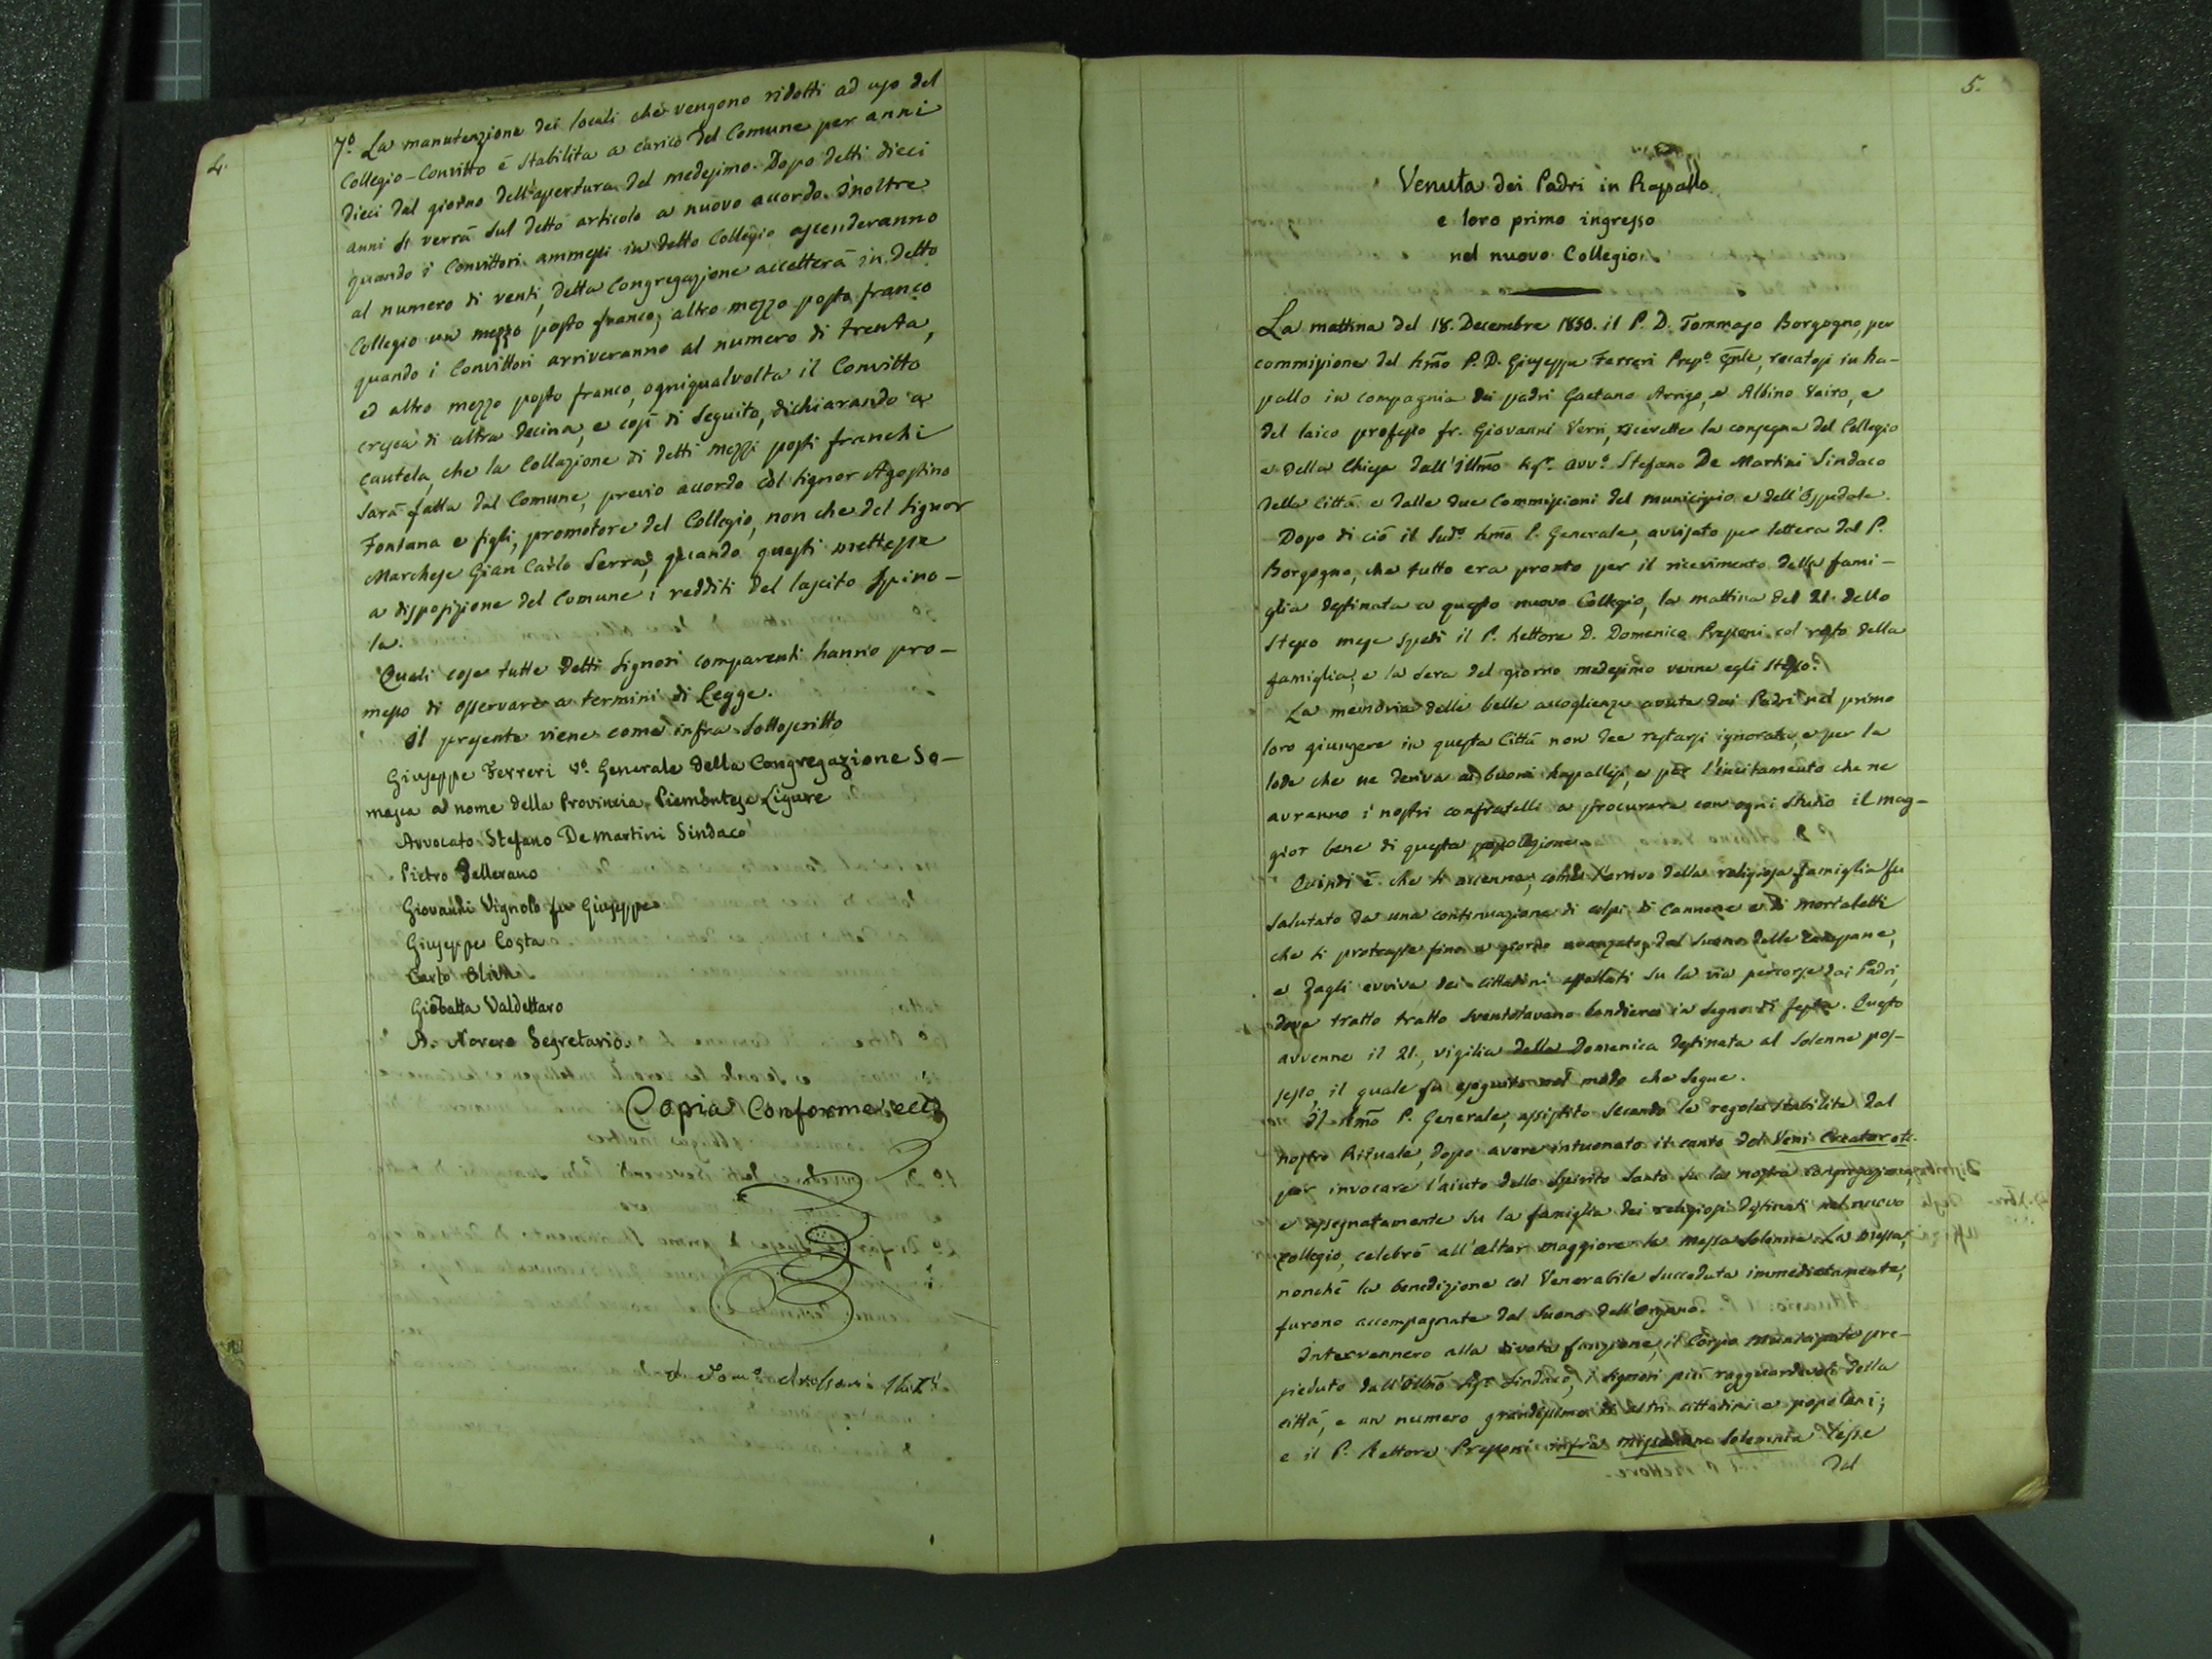 4.
7.º La manutenzione dei locali che vengono ridotti ad uso del
Collegio-Convitto è stabilita a carico del Comune per anni
dieci dal giorno dell'apertura del medesimo. Dopo detti dieci
anni si verrà sul detto articolo a nuovo accordo. Inoltre
quando i Convittori ammessi in detto Collegio ascenderanno
al numero di venti, detta Congregazione accetterà in detto
Collegio un mezzo posto franco; altro mezzo posto franco
quando i Convittori arriveranno al numero di trenta,
ed altro mezzo posto franco, ognigualvolta il Convitto
cresca di altra decina, e così di seguito, dichiarando a
cautela, che la Collazione di detti mezzi posti franchi
sarà fatta dal Comune, previo accordo col signor Agostino
Fontana e figli, promotore del Collegio, non che del signor
Marchese Gian Carlo Serra, quando questi mettesse
a disposizione del Comune i redditi del lascito Spino-
la.
Quali cose tutte detti signori comparenti hanno pro-
messo di osservare a termini di Legge.
Il presente viene come infra sottoscritto
Giuseppe Ferreri Vº. Generale della Congregazione So-
masca a nome della Provincia Piemontese Ligure
Avvocato Stefano De Martini Sindaco
Pietro Dellerano
Giovanni Vignolo fu Giuseppe
Giuseppe Costa
Carlo
Giobatta Valdettaro
A. Novero Segretario.
Copia Conforme ecc.
5.
Venuta dei Padri in Rapallo
e loro primo ingresso
nel nuovo Collegio.
La mattina del 18. Decembre 1850. il P. D. Tommaso Borgogno, per
commissione del Rmo P. D. Giuseppe Ferreri Prepº. Gnle, recatosi in Ra-
pallo in compagnia dei padri Gaetano Arrigo, e Albino Vairo, e
del laico professo fr. Giovanni Verri, ricevette la consegna del Collegio
e della Chiesa dall'Illmo Sigr. Avvº. Stefano De Martini Sindaco
della Città e dalle due Commissioni del municipio e dell'Ospedale.
Dopo di ciò il sudº. Rmo P. Generale, avvisato per lettera dal P.
Borgogno, che tutto era pronto per il ricevimento della fami-
glia destinata a questo nuovo Collegio, la mattina del 21. dello
stesso mese spedì il P. Rettore D. Domenico Pressoni col resto della
famiglia, e la sera del giorno medesimo venne egli stesso.
La memoria delle belle accoglienze avute dai Padri nel primo
loro giungere in questa Città non dee restarsi ignorata, e per la
lode che ne deriva ai buoni Rapallesi, e per l'incitamento che ne
avranno i nostri confratelli a procurare con ogni studio il mag-
gior bene di questa popolazione.
Quindi è che si accenna, come l'arrivo della religiosa famiglia fu
salutato da una continuazione di colpi di cannone e di mortaletti
che si protrasse fino a giorno avanzato, dal suono delle campane,
e dagli evviva dei cittadini affollati su la via percorsa dai Padri,
dove tratto tratto sventolavano bandiere in segno di festa. Questo
avvenne il 21., vigilia della Domenica destinata al solenne pos-
sesso, il quale fu eseguito nel modo che segue.
Il Rmo P. Generale, assistito secondo le regole stabilite dal
nostro Rituale, dopo avere intuonato il canto del Veni Creator etc.
per invocare l'aiuto dello Spirito Santo su la nostra congregazione,
e segnatamente su la famiglia dei religiosi destinati nel nuovo
collegio, celebrò all'altar maggiore la messa solenne. La messa,
nonchè la benedizione col Venerabile succeduta immediatamente,
furono accompagnate dal suono dell'organo.
Intervennero alla divota funzione, il Corpo municipale pre-
sieduto dall'Illmo Sigr. Sindaco, i signori più ragguardevoli della
città, e un numero grandissimo di altri cittadini e popolani;
e il P. Rettore Pressoni infra missarum solemnia lesse
del